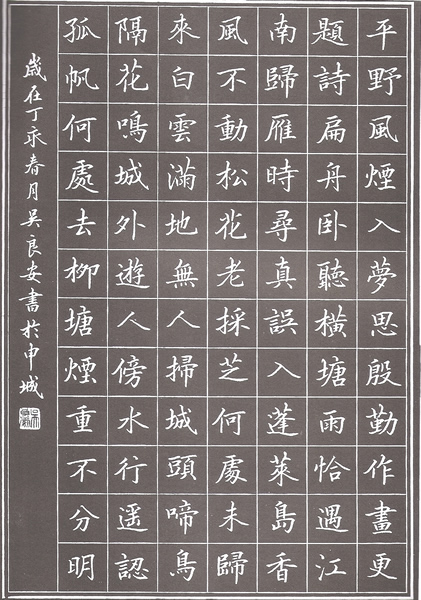 平野風煙入夢思殷勤作畫更
題詩扁舟卧聽橫塘雨恰遇江
南歸雁時尋真誤入蓬萊島香
風不動松花老採芝何處未歸
來白雲滿地無人掃城頭啼鳥
隔花鳴城外遊人傍水行遥認
孤帆何處去柳塘煙重不分明
歲在丁亥春月吳良安書於申城